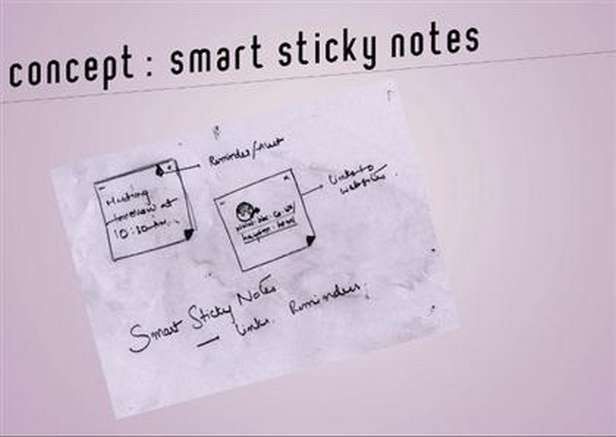 concept : smart sticky notes
Reminder/Alert
Meeting
tomorrow at
10:30am.
Links to
websites.
Smart Sticky Notes
— Links. Reminders.